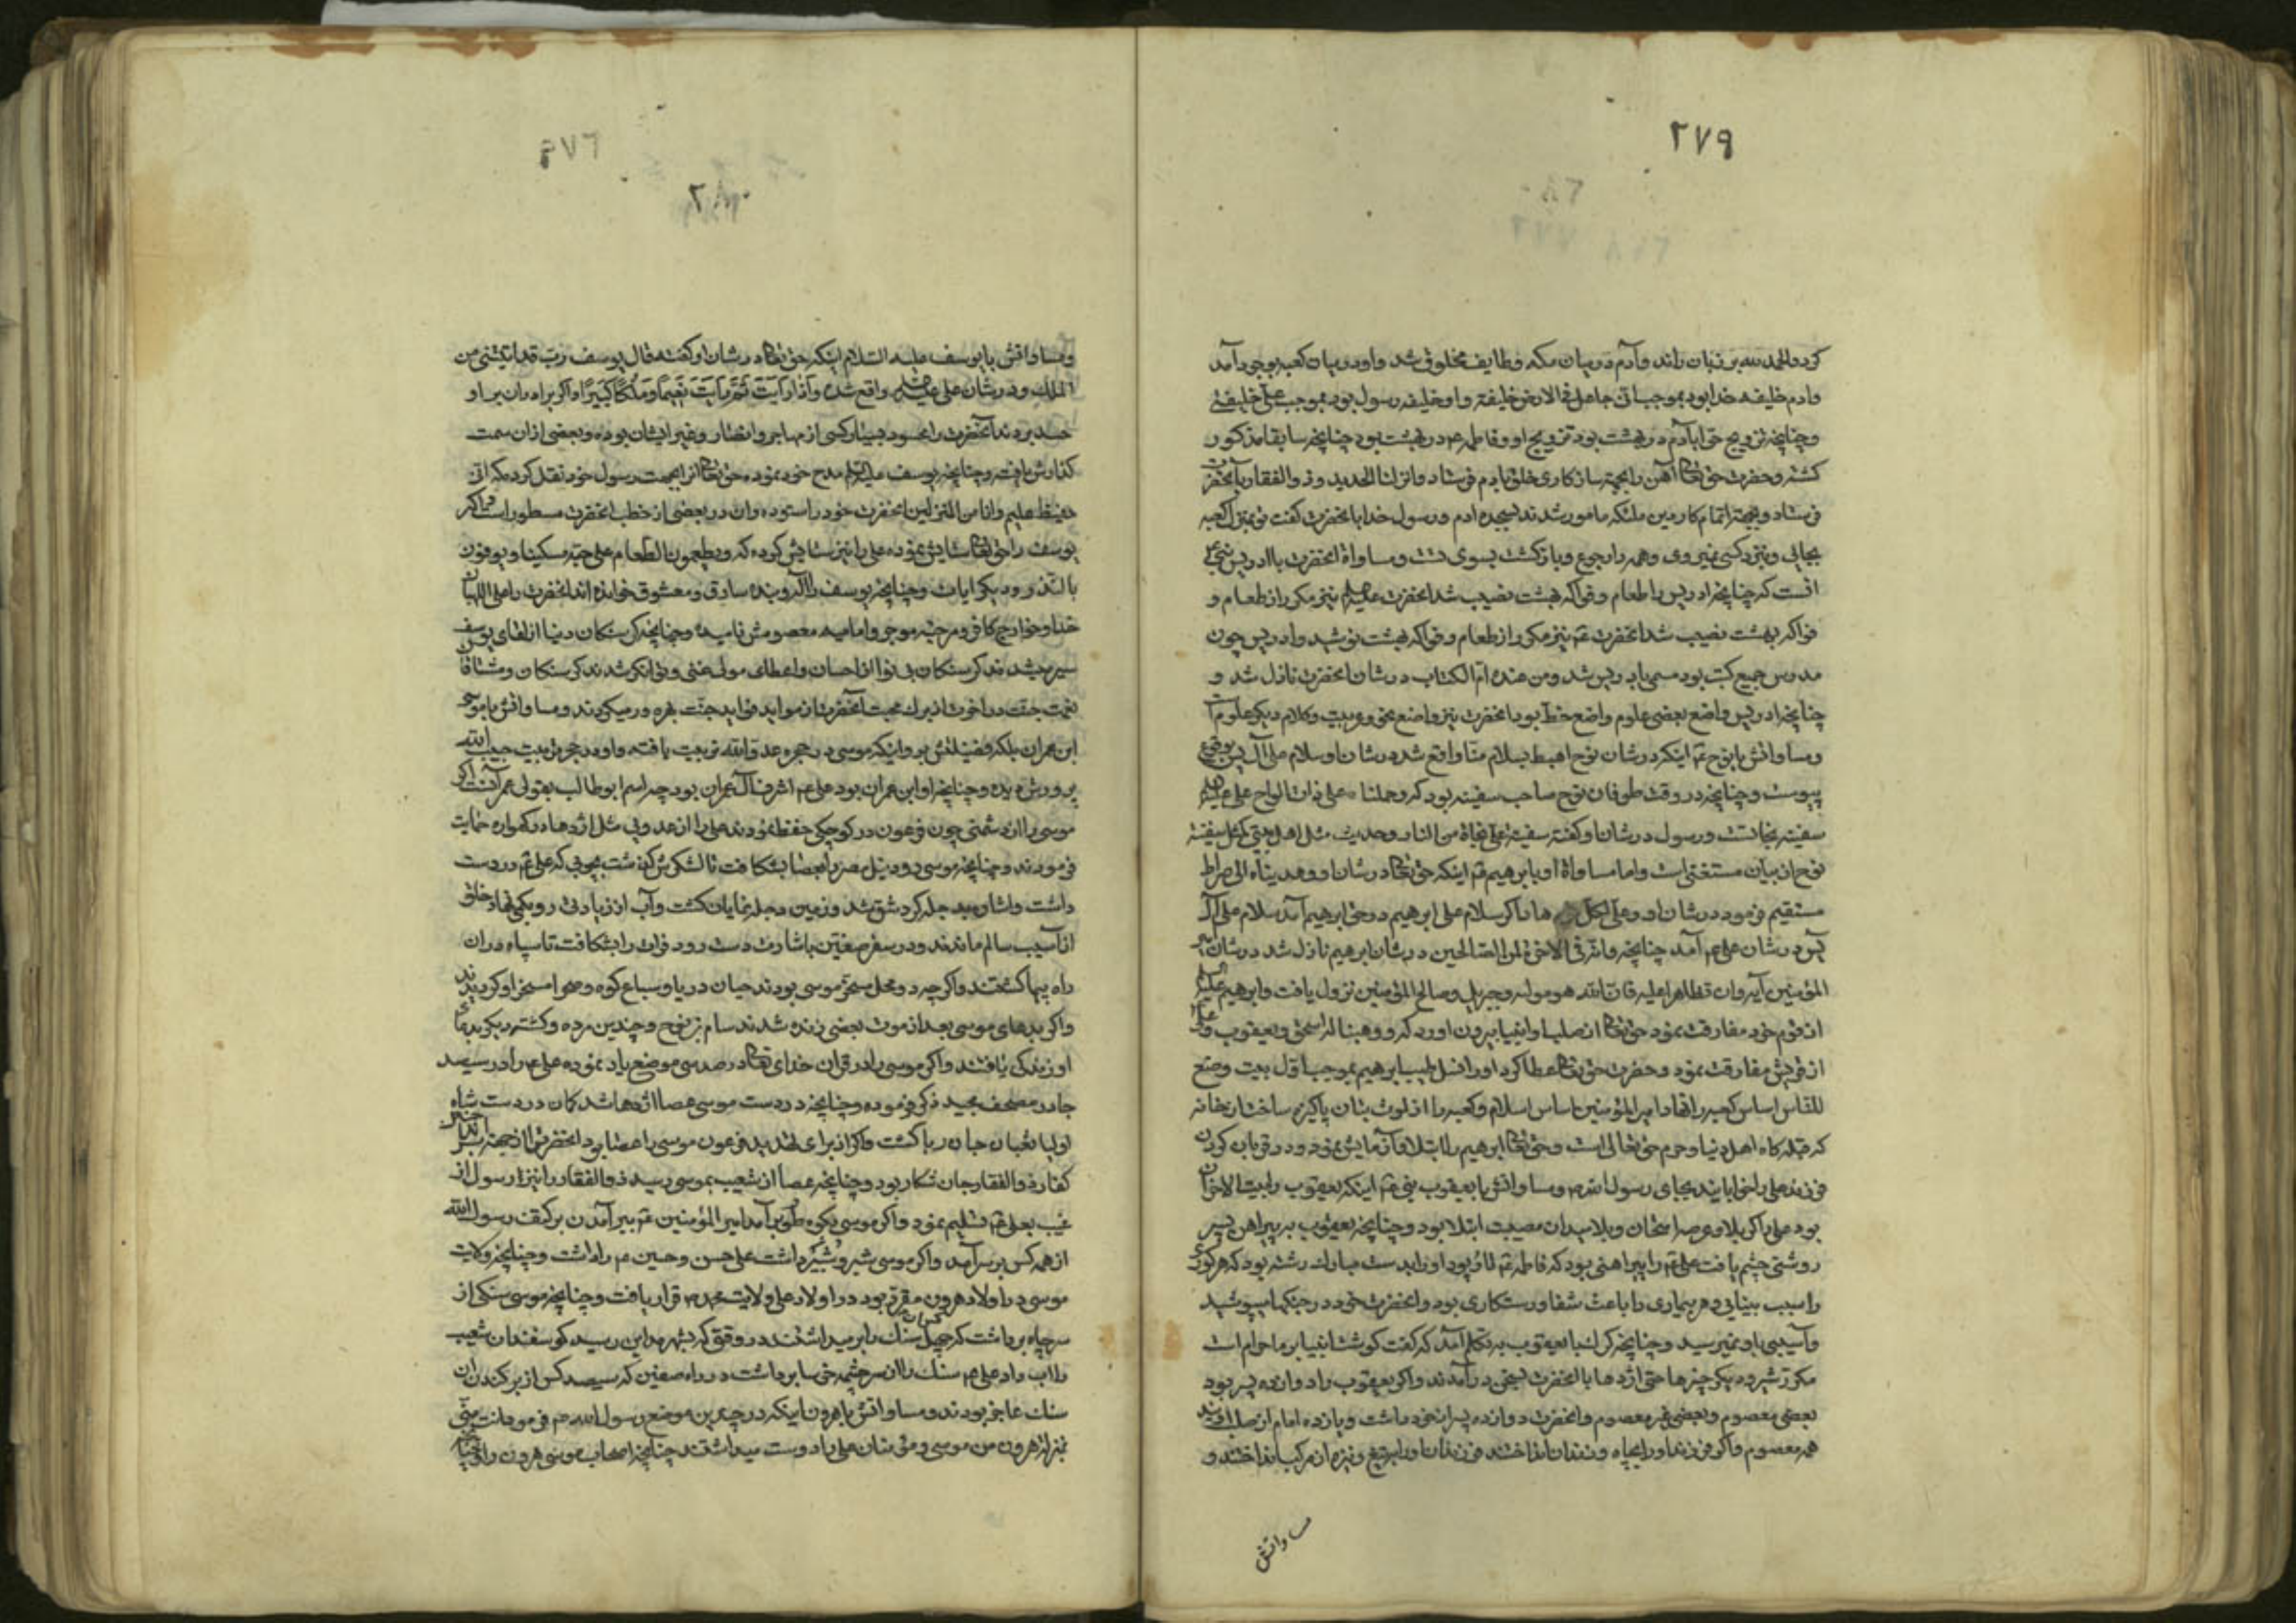 ۲۷۹
کرد والحمد لله بر زبان راند وآدم در میان مکه وطایف مخلوق شد واو در میان کعبه بوجود آمد
وادم خلیفه خدا بود بموجب انی جاعل فی الارض خلیفة واو خلیفه رسول بود بموجب علی خلیفتی
وچنانچه تزویج حوا بآدم در بهشت بود تزویج او وفاطمه ع در بهشت بود چنانچه سابقا مذکور
کشته وحضرت حق تعا آهن را بجهة ساز کاری خلق بادم فرستاد وانزلنا الحدید وذوالفقار بآنحضرت
فرستاد وبجهة اتمام کار مین ملئکه مامور شدند بسجده ادم ورسول خدا بانحضرت کفت تو بمنزلۀ کعبه
بجائی ونزد کسی نمیروی وهمه را رجوع وبازکشت بسوی تست ومساواة انحضرت با ادریس نبی ع
انست که چنانچه ادریس را طعام وفواکه بهشت نصیب شد انحضرت علیه السلم نیز مکرر از طعام و
فواکه بهشت نصیب شد انحضرت ع نیز مکرر از طعام وفواکه بهشت نوشید وادریس چون
مدرس جمیع کتب بود مسمی بادریس شد ومن عنده ام الکتاب در شان انحضرت نازل شد و
چنانچه ادریس واضع بعضی علوم واضع خط بود انحضرت نیز واضع نحو وعربیت وکلام دیکر علوم است
ومساواتش با نوح ع اینکه در شان نوح اهبط بسلام منا واقع شد در شان او سلام علی آل یس بوقوع
پیوست وچنانچه در وقت طوفان نوح صاحب سفینه بود که وحملناه علی ذات الواح علی علیه السلم
سفینه نجاتست ورسول در شان او کفته سفینة علی نجاة من النار وحدیث مثل اهل بیتی کمثل سفینة
نوح از بیان مستغنی است واما مساواة او با ابرهیم ع اینکه حق تعا در شان او وهدیناه الی صراط
مستقیم فرمود در شان او وعلی لکل هاد اکر سلام علی ابرهیم در حق ابرهیم آمد سلام علی آل
یس در شان علی ع آمد چنانچه وانه فی الاخرة لمن الصالحین در شان ابرهیم نازل شد در شان امیر
المؤمنین آیه وان تظاهرا علیه فان الله هو مولیه وجبریل وصالح المؤمنین نزول یافت وابرهیم علیه السلم
از قوم خود مفارقت نمود حق تعا از صلب او انبیا بیرون اورد که ووهبنا له اسحق ویعقوب وعلی ع
از قریش مفارقت نمود وحضرت حق تعا عطا کرد او را نسل طیب ابرهیم بموجب اول بیت وضع
للناس اساس کعبه را نهاد امیرالمؤمنین اساس اسلام وکعبه را از لوث بتان پاکیزه ساخت ان خانه
که قبله کاه اهل دنیا وحرم حق تعالی است وحق تعا ابرهیم را ابتلا وآزمایش نمود ودر قربان کردن
فرزند علی را خوابانید بجای رسول الله ص ومساواتش با یعقوب نبی ع اینکه یعقوب را بیت الاحزان
بود علی را کربلا وعرصه امتحان وبلا میدان مصیبت ابتلا بود وچنانچه یعقوب به پیراهن پسر
روشنی چشم یافت علی ع را پیراهنی بود که فاطمه ع تار وپود او را بدست مبارک رشته بود که هر کوری
را سبب بینائی وهر بیماری را باعث شفا ورستکاری بود وانحضرت خود در جنکها میپوشید
وآسیبی باو نمیرسید وچنانچه کرک با یعقوب به تکلم آمد که کفت کوشت انبیا بر ما حرام است
مکرر شیر ودیکر چیزها حتی اژدها با انحضرت بسخن در آمدند واکر یعقوب را دوازده پسر بود
بعضی معصوم وبعضی غیر معصوم وانحضرت دوازده پسر از خود داشت ویازده امام از صلب او بودند
همه معصوم واکر فرزند او را بچاه وزندان انداختند فرزندان او را بتیغ ونیزه از مرکب انداختند و
مساواتش
۲۸۰
ومساواتش با یوسف علیه السلام اینکه حق تعا در شان او کفته قال یوسف رب قد اتیتنی من
الملک ودر شان علی علیه السلم واقع شده واذا رایت ثم رایت نعیما وملکا کبیرا واکر برادران بر او
حسد بردند آنحضرت را محسود بسیار کسی از مهاجر وانصار وغیر ایشان بوده وبعضی از ان سمت
کذارش یافت وچنانچه یوسف علیه السلم مدح خود نموده حق تعا انرا بجهت رسول خود نقل کرده که انی
حفیظ علیم وانا من المنزلین انحضرت خود را ستوده وان در بعضی از خطب انحضرت مسطور است واکر
یوسف را حق تعا ستایش نموده علی را نیز ستایش کرده که ویطعمون الطعام علی حبه مسکینا ویوفون
بالنذر ودیکر ایات وچنانچه یوسف را کروبنده سارق ومعشوق خوانده اند انحضرت را علی اللهیان
خدا وخوارج کافر ومرجئه موجر وامامیه معصومش نامیده وچنانچه کرسنکان دنیا از لقای یوسف
سیر میشدند کرسنکان بی نوا از احسان واعطای مولی غنی وتوانکر شدند کرسنکان ومشتاقان
نعمت جنت در اخرت از برک محبت آنحضرت از موابد فواید جنت بهره ور میکردند ومساواتش با موسی
ابن عمران بلکه فضیلتش بر او اینکه موسی در حجره عدو الله تربیت یافته واو در حجر تربیت حبیب الله
پرورش دیده وچنانچه او ابن عمران بود علی ع اشرف آل عمران بود چه اسم ابوطالب بقولی عمرانست اکر
موسی را از دشمنی چون فرعون در کوچکی حفظ نمودند علی را از عدوئی مثل اژدها در کهواره حمایت
فرمودند وچنانچه موسی رود نیل مصر را بعصا بشکافت تا لشکرش کذشت بچوبی که علی ع در دست
داشت واشاره بدجله کرد شق شد وزمین دجله نمایان کشت وآب از زیادتی رو بکمی نهاد خلق
از آسیب سالم ماندند ودر سفر صفین باشارت دست رود فرات را بشکافت تا سپاه در ان
راه پیما کشتند واکرچه دو محل مسخر موسی بودند حیتان دریا وسباع کوه وصحرا مسخر او کردیدند
واکر بدعای موسی بعد از موت بعضی زنده شدند سام بن نوح وچندین مرده وکشته دیکر بدعای
او زندکی یافتند واکر موسی را در قران خدای تعا در صد سی موضع یاد نموده علی ع را در سیصد
جا در مصحف مجید ذکر فرموده وچنانچه در دست موسی عصا اژدها شد کمان در دست شاه
اولیا ثعبان جان ربا کشت واکر از برای تهدید فرعون موسی را عصا بود انحضرت را از جهة
کفار ذوالفقار جان شکار بود وچنانچه عصا از شعیب بموسی رسید ذوالفقار را نیز رسول از
غیب بعلی ع تسلیم نمود واکر موسی بکوه طور بر آمد امیر المؤمنین ع ببر آمدن بر کتف رسول الله
از همه کس برسر آمد واکر موسی شبر وشبیر داشت علی حسن وحسین ع را داشت وچنانچه ولایت
موسی در اولاد هرون مقرر بود در اولاد علی ولایت محمد ص قرار یافت وچنانچه موسی سنکی از
سر چاه برداشت که چهل کس ان سنک را بر میداشتند در وقتی که بشهر مداین رسید کوسفندان شعیب
را اب داد علی ع سنک را از سر چشمه خسا برداشت در راه صفین که سیصد کس از بر کندن ان
سنک عاجز بودند ومساواتش با هرون اینکه در چندین موضع رسول الله ص فرمود انت منی
بمنزلة هرون من موسی ومؤمنان علی را دوست میداشتند چنانچه اصحاب موسی هرون را